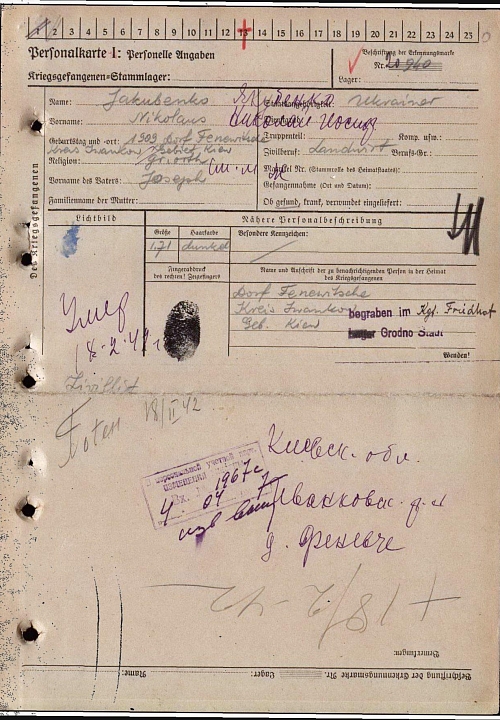 1 2 3 4 5 6 7 8 9 10 11 12 13 14 15 16 17 18 19 20 21 22 23 24 25
Personalkarte I: Personelle Angaben
Kriegsgefangenen-Stammlager:
Beschriftung der Erkennungsmarke
Nr. 20960
Lager:
Des Kriegsgefangenen
Name: Jakubenko
Staatsangehörigkeit: Ukrainer
Vorname: Nikolaus
Dienstgrad:
Geburtstag und -ort: 1909 Dorf Fenewitsche
Truppenteil: Komp. usw.:
Kreis Iwankow Gebiet Kiew
Zivilberuf: Landwirt Berufs-Gr.:
Religion:
Matrikel Nr. (Stammrolle des Heimatstaates):
Vorname des Vaters: Joseph
Gefangennahme (Ort und Datum):
Familienname der Mutter:
Ob gesund, krank, verwundet eingeliefert:
Lichtbild
Nähere Personalbeschreibung
Größe
Haarfarbe
Besondere Kennzeichen:
1.71
dunkel
Fingerabdruck
des rechten! Zeigefingers
Name und Anschrift der zu benachrichtigenden Person in der Heimat
des Kriegsgefangenen
Dorf Fenewitsche
Kreis Iwankow
Geb. Kiew
begraben im Kgf. Friedhof
Lager Grodno Stadt
Wenden!
Умер
18-2-42 г
Zivilist
Toten 18/II 42
Киевск. обл.
Иванковск. р-н
д. Феневиче
1967 г
4 04
+ 18/2-42
Bemerkungen:
Beschriftung der Erkennungsmarke Nr. Lager: Name: